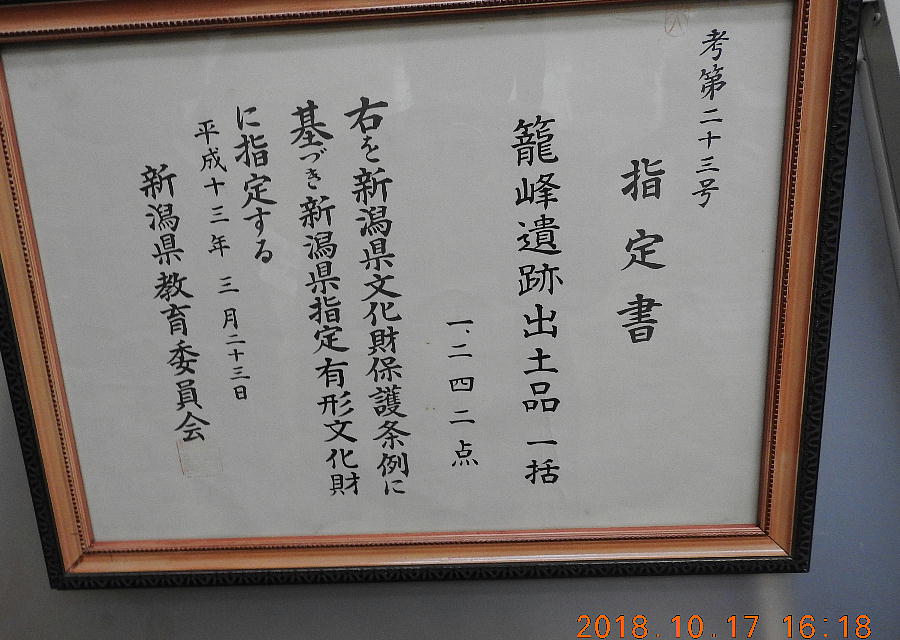 考第二十三号
指定書
籠峰遺跡出土品 一括
一、二四二点
右を新潟県文化財保護条例に
基づき新潟県指定有形文化財
に指定する
平成十三年三月二十三日
新潟県教育委員会
2018.10.17 16:18